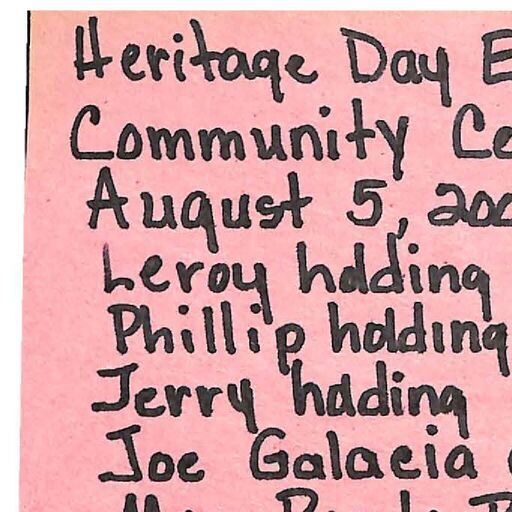 Heritage Day E
Community Ce
August 5, 200
Leroy holding
Phillip holding
Jerry holding
Joe Galacia